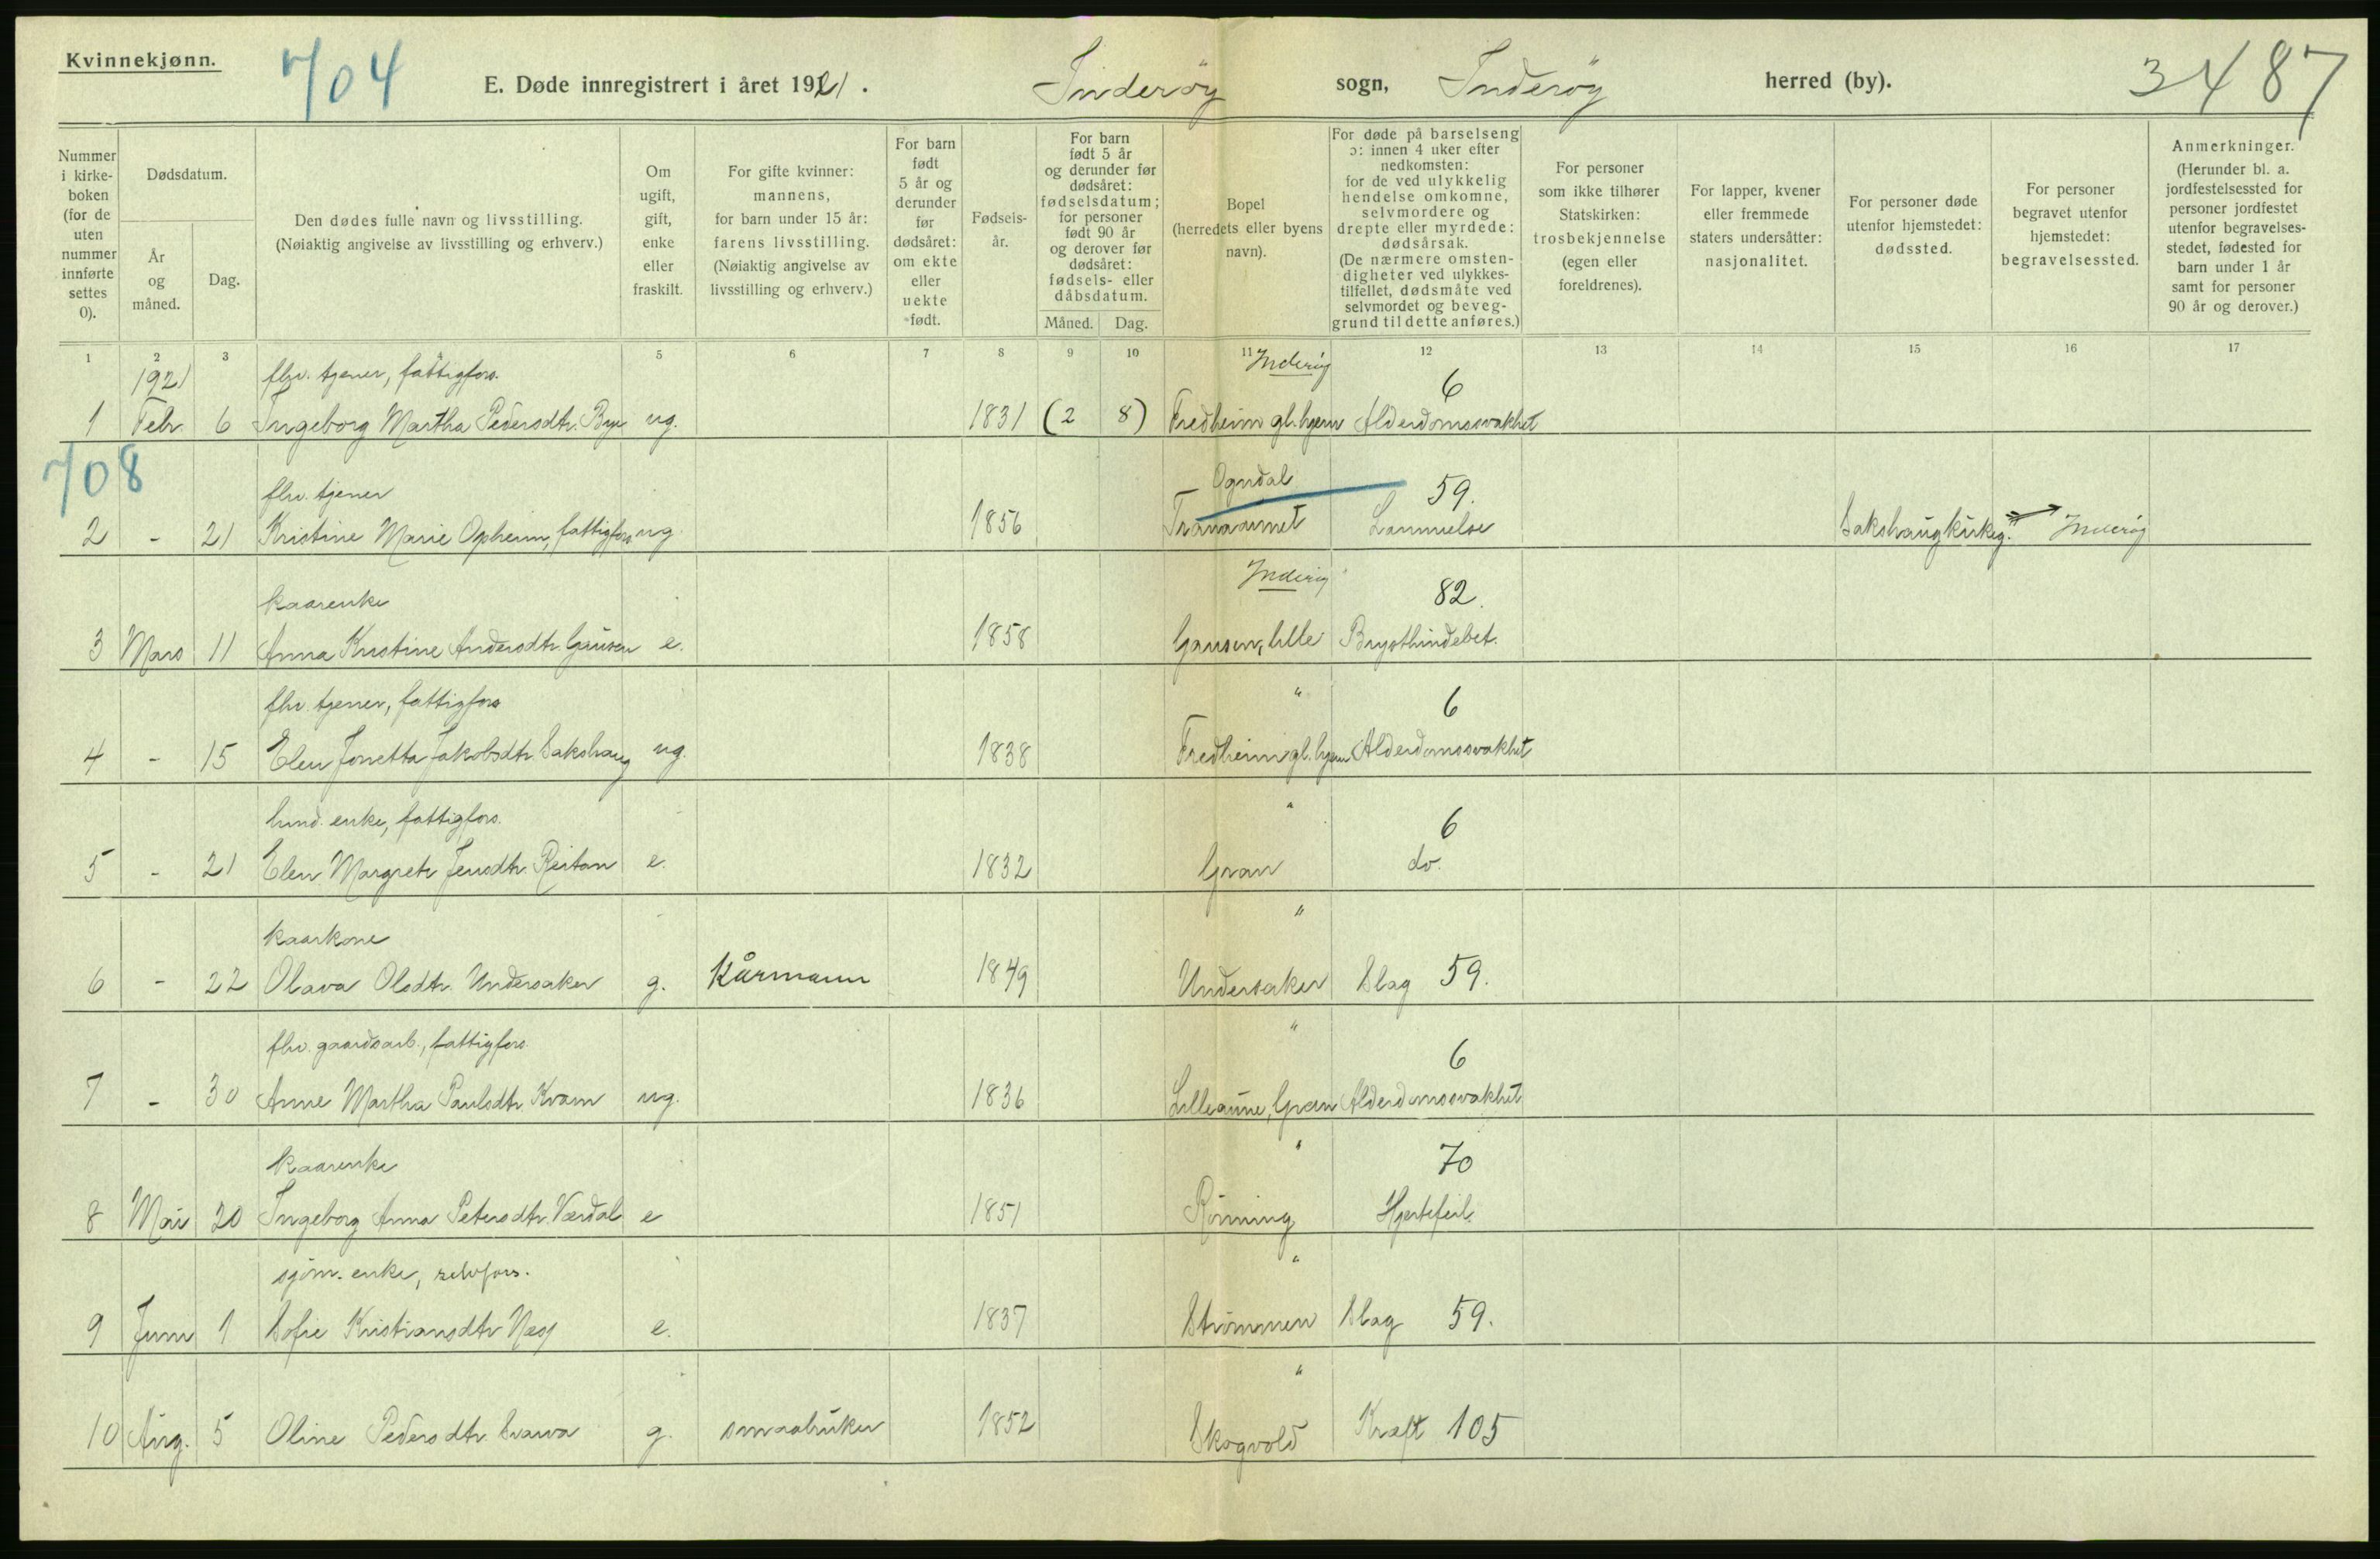 Kvinnekjønn.
704
E. Døde innregistrert i året 1921.
Inderöy sogn, Inderöy herred (by).
3487
Nummer i kirkeboken (for de uten nummer innførte settes 0).
Dødsdatum.
År og måned.
Dag.
Den dødes fulle navn og livsstilling.
(Nøiaktig angivelse av livsstilling og erhverv.)
Om ugift, gift, enke eller fraskilt.
For gifte kvinner: mannens, for barn under 15 år: farens livsstilling.
(Nøiaktig angivelse av livsstilling og erhverv.)
For barn født 5 år og derunder før dødsåret: om ekte eller uekte født.
Fødsels-år.
For barn født 5 år og derunder før dødsåret: fødselsdatum; for personer født 90 år og derover før dødsåret: fødsels- eller dåbsdatum.
Måned.
Dag.
Bopel (herredets eller byens navn).
For døde på barselseng ɔ: innen 4 uker efter nedkomsten: for de ved ulykkelig hendelse omkomne, selvmordere og drepte eller myrdede: dødsårsak.
(De nærmere omsten-digheter ved ulykkes-tilfellet, dødsmåte ved selvmordet og beveg-grund til dette anføres.)
For personer som ikke tilhører Statskirken: trosbekjennelse (egen eller foreldrenes).
For lapper, kvener eller fremmede staters undersåtter: nasjonalitet.
For personer døde utenfor hjemstedet: dødssted.
For personer begravet utenfor hjemstedet: begravelsessted.
Anmerkninger.
(Herunder bl. a. jordfestelsessted for personer jordfestet utenfor begravelses-stedet, fødested for barn under 1 år samt for personer 90 år og derover.)
1 2 3 5 6 7 8 9 10 11 12 13 14 15 16 17
1921 fhv. tjener, fattigfors. Inderöy 6
1 Febr. 6 Ingeborg Martha Pedersdtr. Bye ug. 1831 (2 8) Fredheim gl.hjem Alderdomssvakhet
708
fhv. tjener Ogndal 59.
2 - 21 Kristine Marie Opheim, fattigfors ug. 1856 Tranamet Lammelse Sakshaug kirkeg. Inderöy
kaarenke Inderöy 82.
3 Mars 11 Anna Kristine Andersdtr. Gausen e. 1858 Gausen, lille Brysthindebet.
fhv. tjener, fattigfors " 6
4 - 15 Elen Jonetta Jakobsdtr. Sakshaug ug. 1838 Fredheim gl. hjem Alderdomssvakhet
hund. enke, fattigfors. " 6
5 - 21 Elen Margrete Jensdtr. Reitan e. 1832 Gran do.
kaarkone "
6 - 22 Olava Olsdtr. Undersaker g. Kårmann 1849 Undersaker Slag 59.
fhv. gaardsarb., fattigfors. " 6
7 - 30 Anne Martha Paulsdtr Kvam ug. 1836 Lilleaune, Gran Alderdomssvakhet
kaarenke " 70
8 Mai 20 Ingeborg Anna Petersdtr. Værdal e 1851 Rönning Hjertefeil.
sjöm. enke, selvfors. "
9 Juni 1 Sofie Kristiansdtr Næss e. 1837 Strömmen Slag 59.
"
10 Aug. 5 Oline Pedersdtr. Svarva g. smaabruker 1852 Skogvold Kræft 105